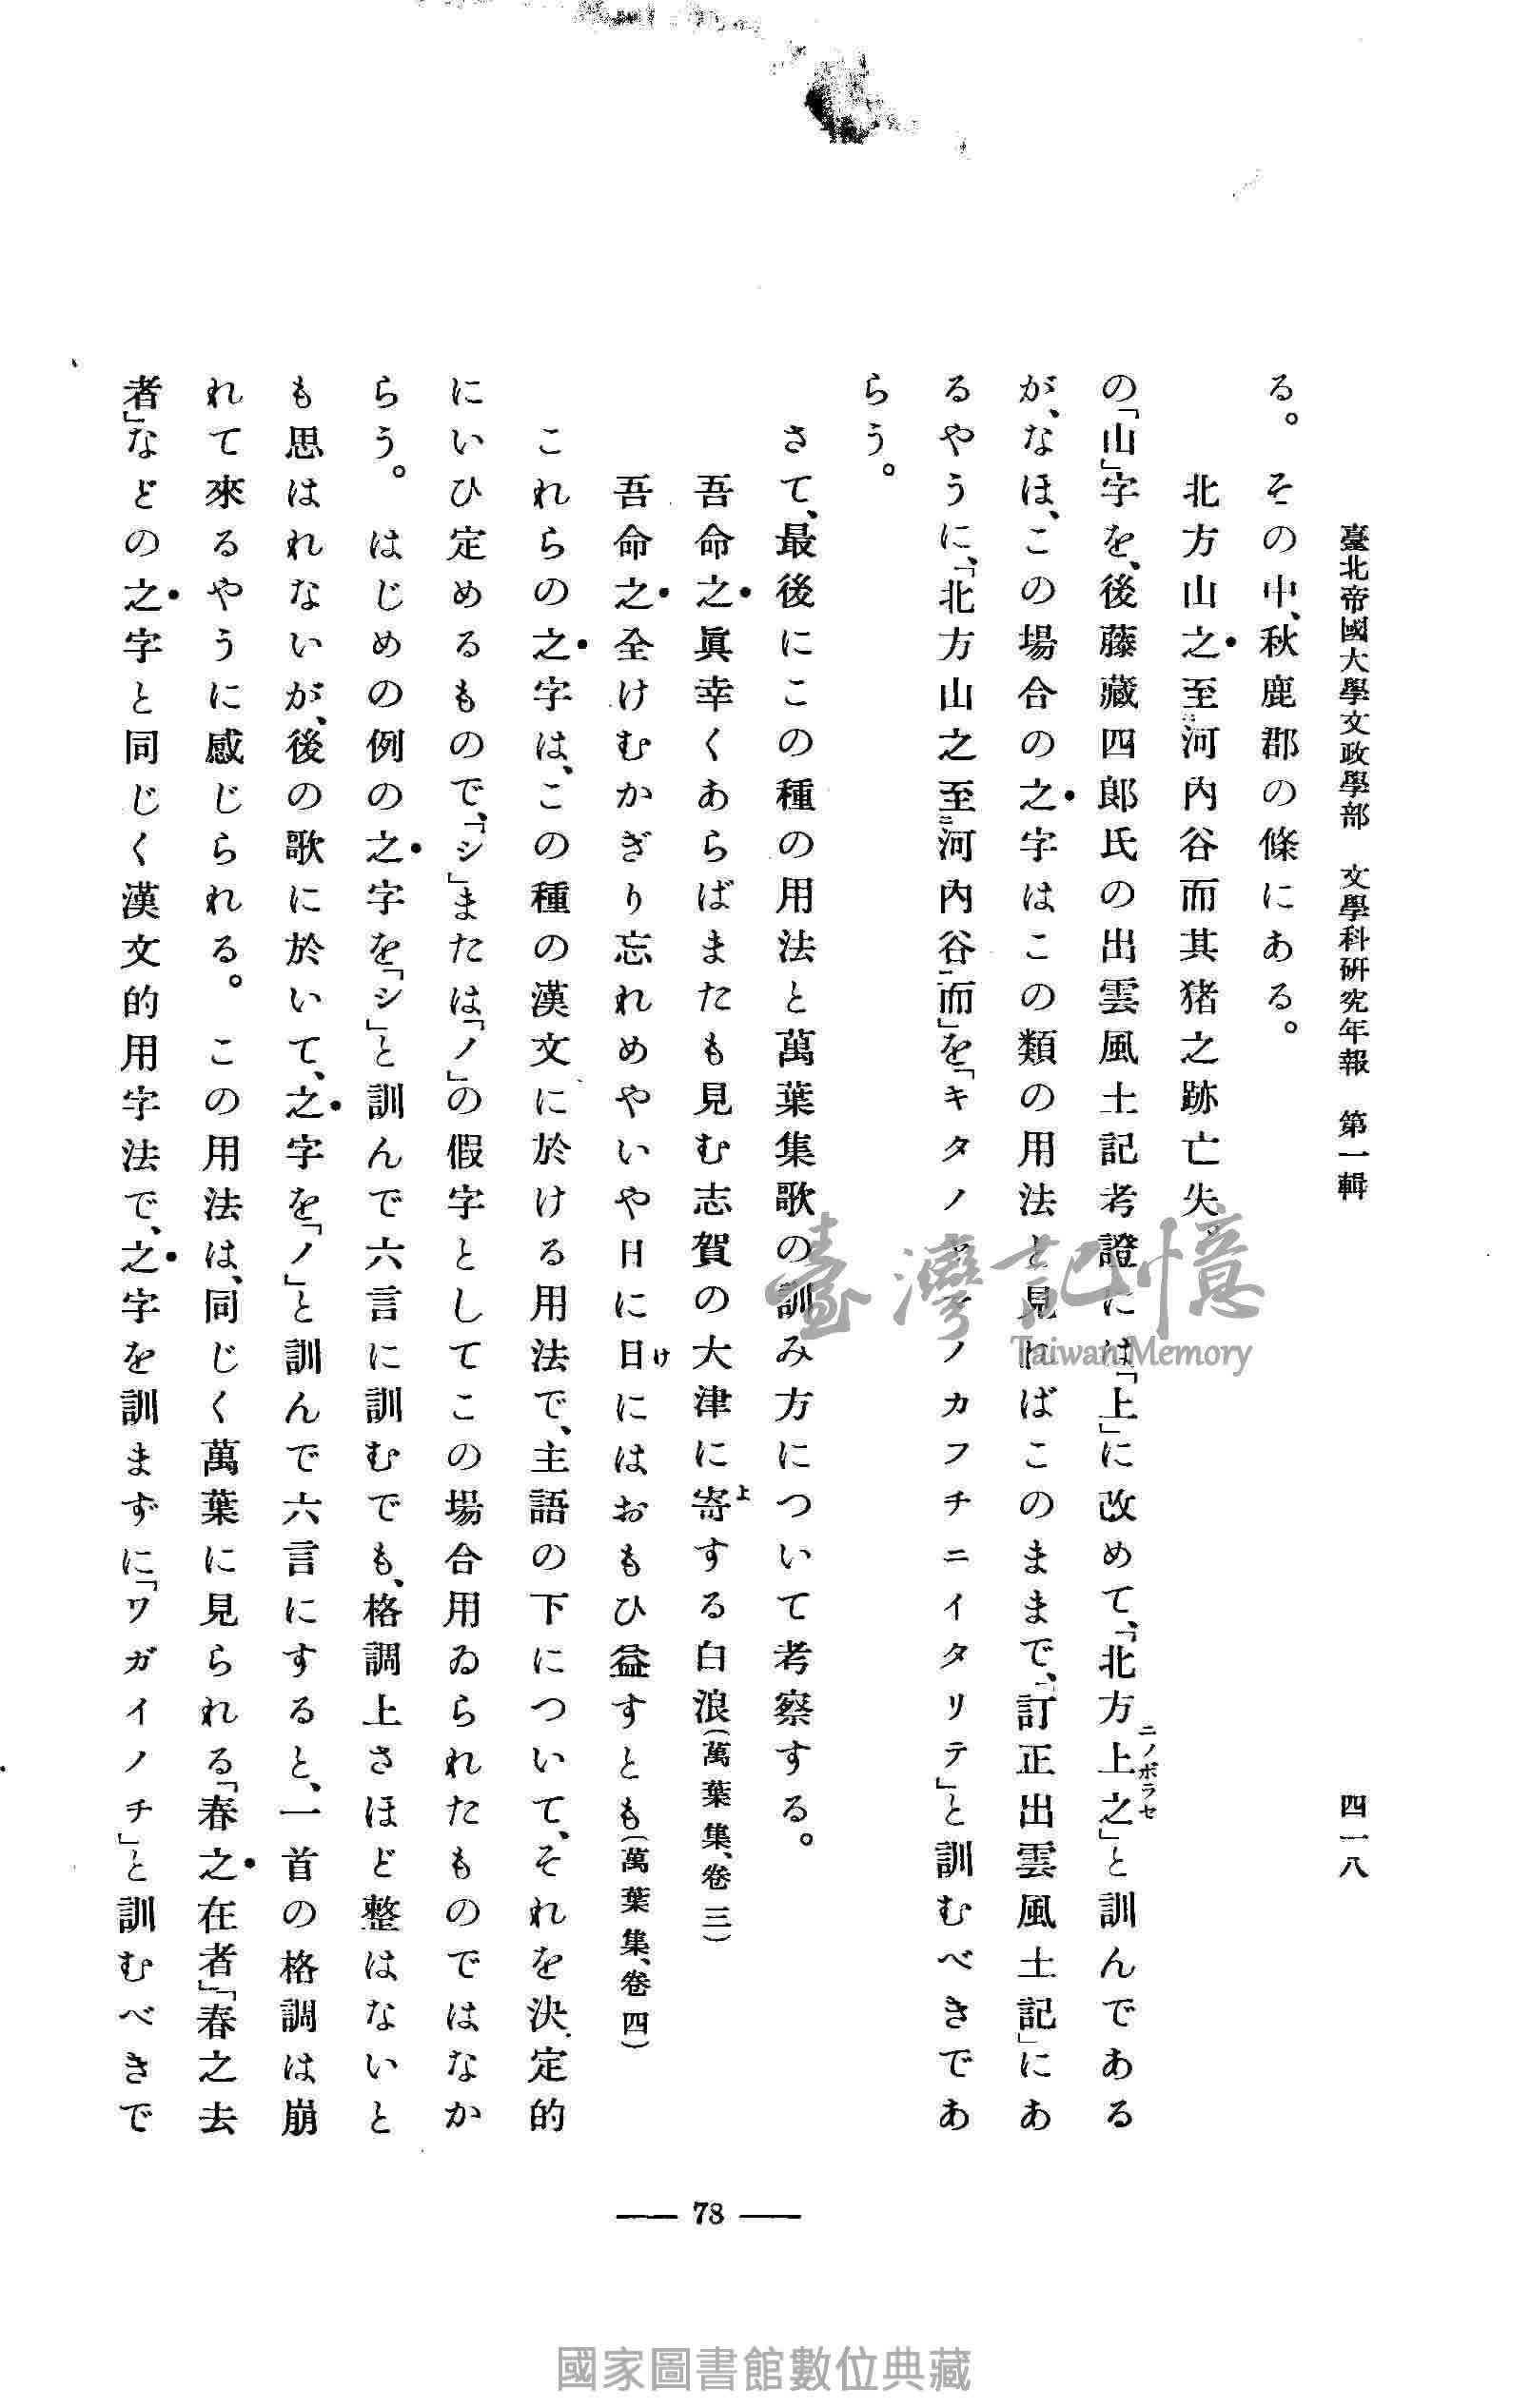 臺北帝國大學文政學部　文學科研究年報　第一輯　四一八
る。その中、秋鹿郡の條にある。
北方山之至河内谷而其猪之跡亡失。
の「山」字を、後藤藏四郎氏の出雲風土記考證には「上」に改めて、「北方上之ニノボラセ」と訓んである
が、なほ、この場合の之字はこの類の用法と見ればこのままで、「訂正出雲風土記」にあ
るやうに、「北方山之至ニ河内谷而」を「キタノヤマノカフチニイタリテ」と訓むべきであ
らう。
さて、最後にこの種の用法と萬葉集歌の訓み方について考察する。
吾命之眞幸くあらばまたも見む志賀の大津に寄よする白浪（萬葉集、卷三）
吾命之全けむかぎり忘れめやいや日に日けにはおもひ益すとも（萬葉集、卷四）
これらの之字は、この種の漢文に於ける用法で、主語の下について、それを決定的
にいひ定めるもので、「シ」または「ノ」の假字としてこの場合用ゐられたものではなか
らう。はじめの例の之字を「シ」と訓んで六言に訓むでも、格調上さほど整はないと
も思はれないが、後の歌に於いて、之字を「ノ」と訓んで六言にすると、一首の格調は崩
れて來るやうに感じられる。この用法は、同じく萬葉に見られる「春之在者」「春之去
者」などの之字と同じく漢文的用字法で、之字を訓まずに「ワガイノチ」と訓むべきで
78
臺灣記憶
Taiwan Memory
國家圖書館數位典藏